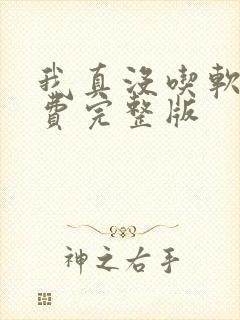 我真没喫軟
費完整版
神之右手